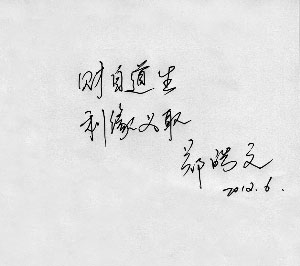 财自道生
利缘义取
郑皓文
2012.6.